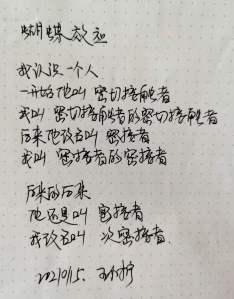 蝴蝶效应
我认识一个人
一开始他叫 密切接触者
我叫 密切接触者的密切接触者
后来他改名叫 密接者
我叫 密接者的密接者
后来的后来
他还是叫 密接者
我改名叫 次密接者.
20211015.